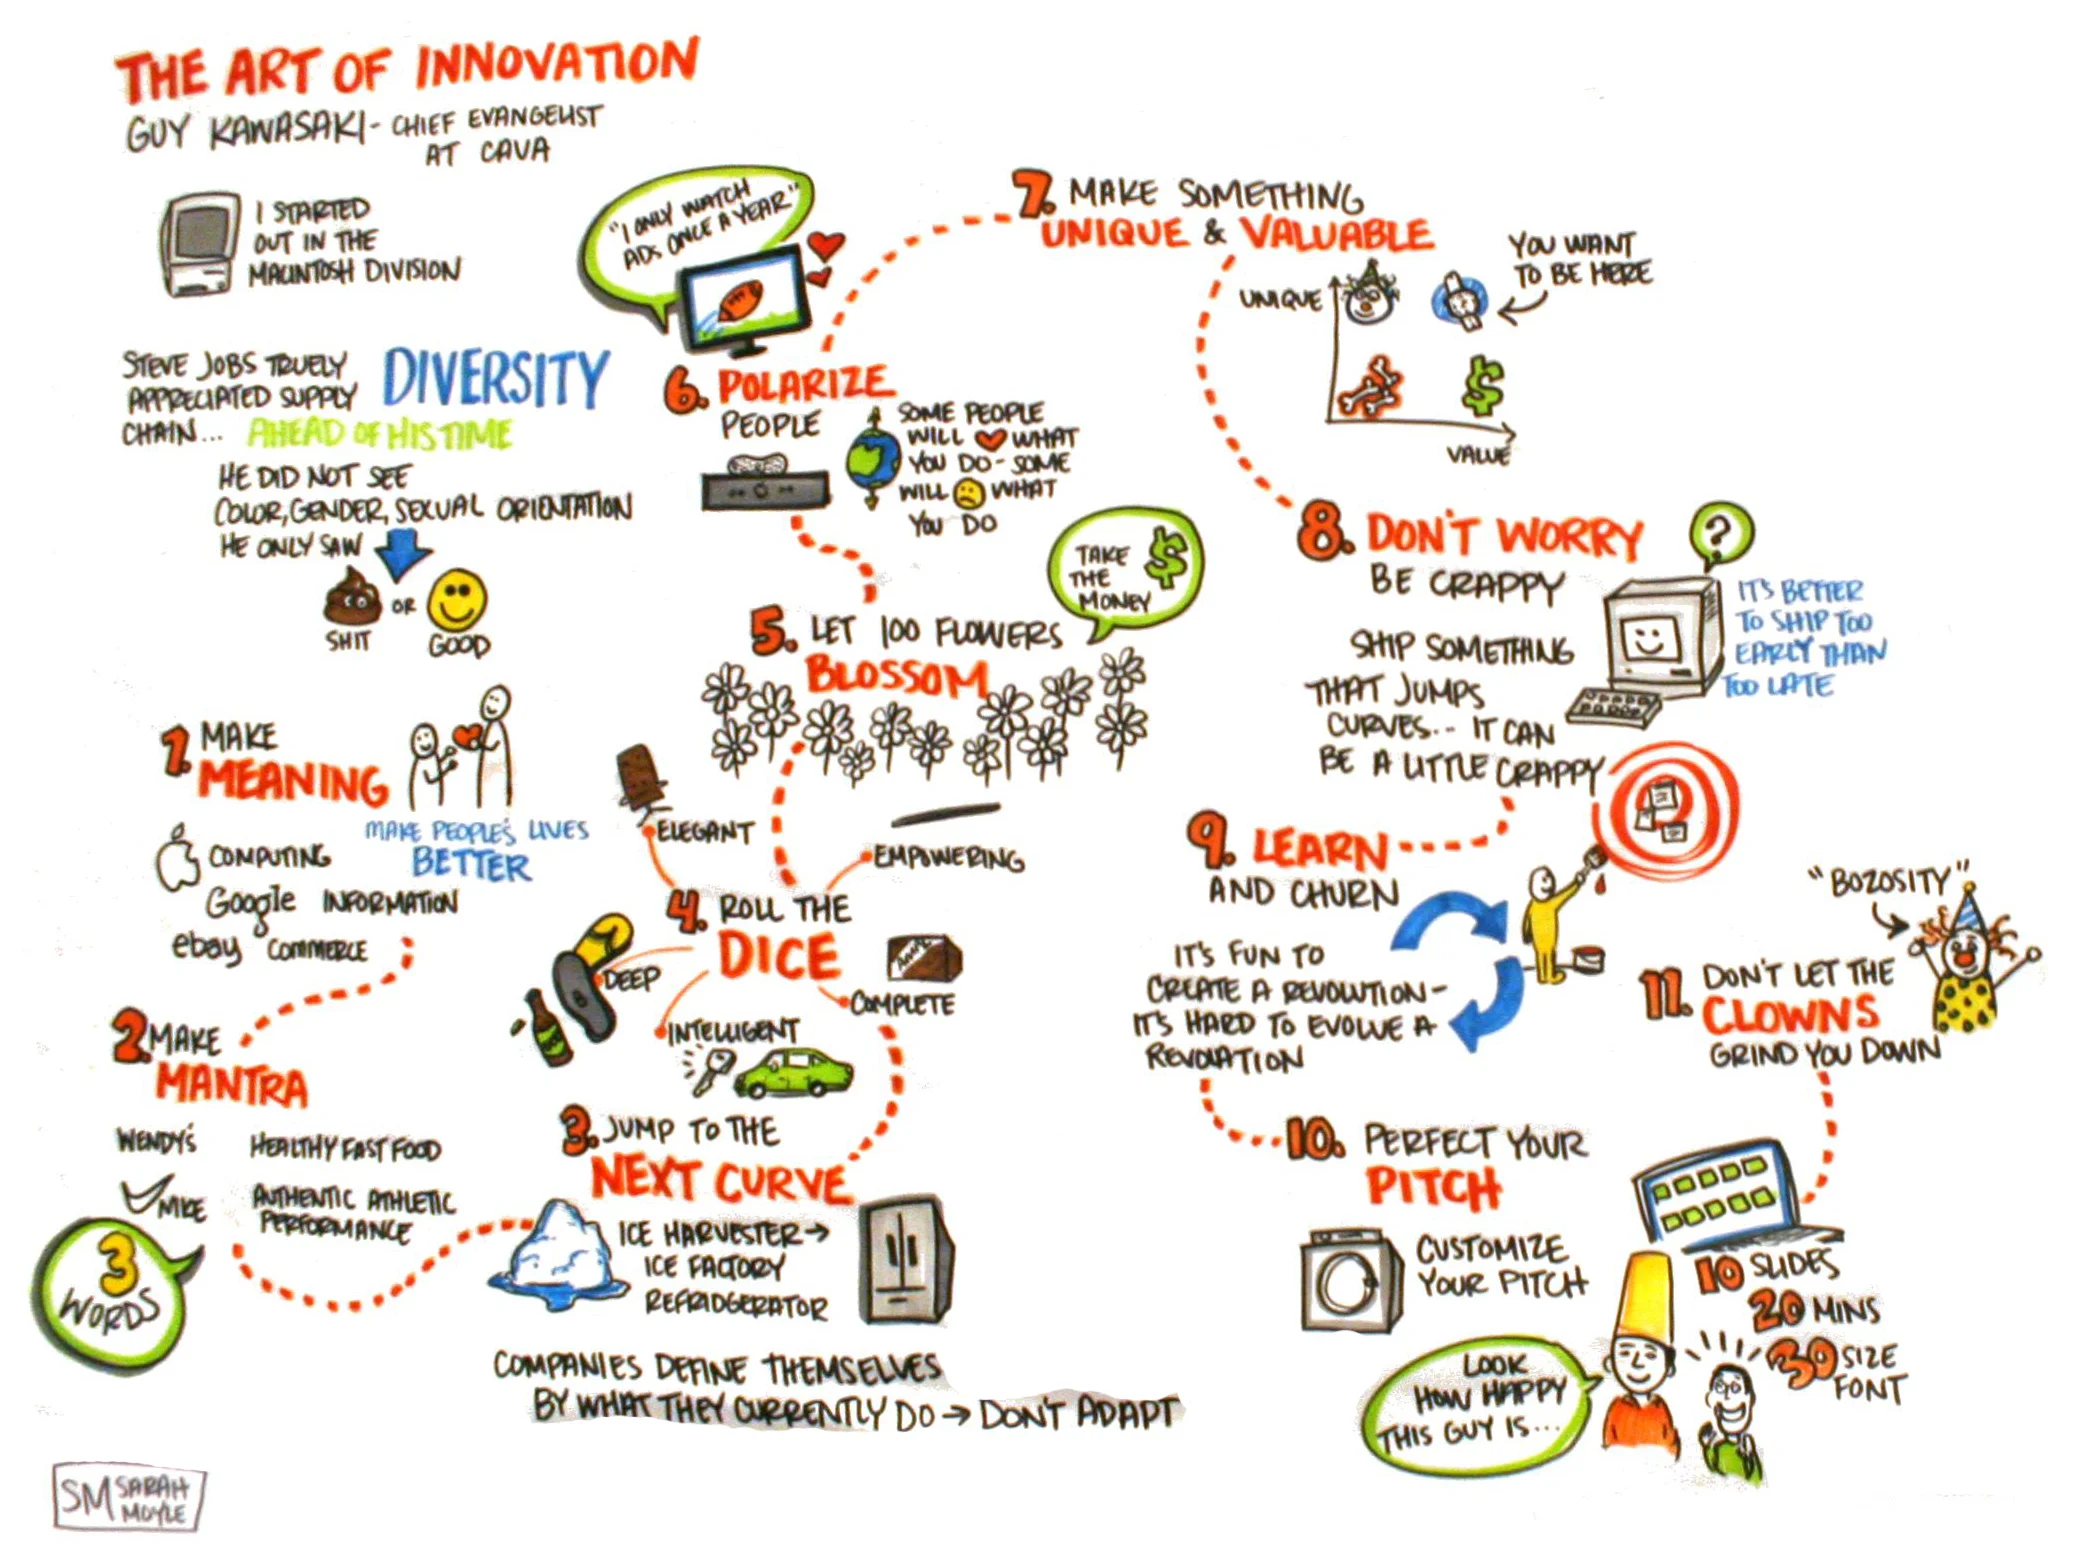 THE ART OF INNOVATION
GUY KAWASAKI - CHIEF EVANGELIST
AT CAVA
I STARTED
OUT IN THE
MACINTOSH DIVISION
STEVE JOBS TRUELY
APPRECIATED SUPPLY
CHAIN...
DIVERSITY
AHEAD OF HIS TIME
HE DID NOT SEE
COLOR, GENDER, SEXUAL ORIENTATION
HE ONLY SAW
OR
SHIT
GOOD
1. MAKE
MEANING
MAKE PEOPLE'S LIVES
BETTER
COMPUTING
Google INFORMATION
ebay COMMERCE
2. MAKE
MANTRA
WENDY'S HEALTHY FAST FOOD
NIKE AUTHENTIC ATHLETIC
PERFORMANCE
3
WORDS
3. JUMP TO THE
NEXT CURVE
ICE HARVESTER →
ICE FACTORY
REFRIDGERATOR
COMPANIES DEFINE THEMSELVES
BY WHAT THEY CURRENTLY DO → DON'T ADAPT
4. ROLL THE
DICE
ELEGANT
EMPOWERING
DEEP
INTELLIGENT
COMPLETE
5. LET 100 FLOWERS
BLOSSOM
TAKE
THE
MONEY
$
6. POLARIZE
PEOPLE
"I ONLY WATCH
ADS ONCE A YEAR"
SOME PEOPLE
WILL ❤ WHAT
YOU DO - SOME
WILL ☹ WHAT
YOU DO
7. MAKE SOMETHING
UNIQUE & VALUABLE
YOU WANT
TO BE HERE
UNIQUE
$
VALUE
8. DON'T WORRY
BE CRAPPY
?
SHIP SOMETHING
THAT JUMPS
CURVES... IT CAN
BE A LITTLE CRAPPY
IT'S BETTER
TO SHIP TOO
EARLY THAN
TOO LATE
9. LEARN
AND CHURN
IT'S FUN TO
CREATE A REVOLUTION -
IT'S HARD TO EVOLVE A
REVOLUTION
10. PERFECT YOUR
PITCH
CUSTOMIZE
YOUR PITCH
10 SLIDES
20 MINS
30 SIZE
FONT
LOOK
HOW HAPPY
THIS GUY IS...
11. DON'T LET THE
CLOWNS
GRIND YOU DOWN
"BOZOSITY"
SM SARAH
MOYLE